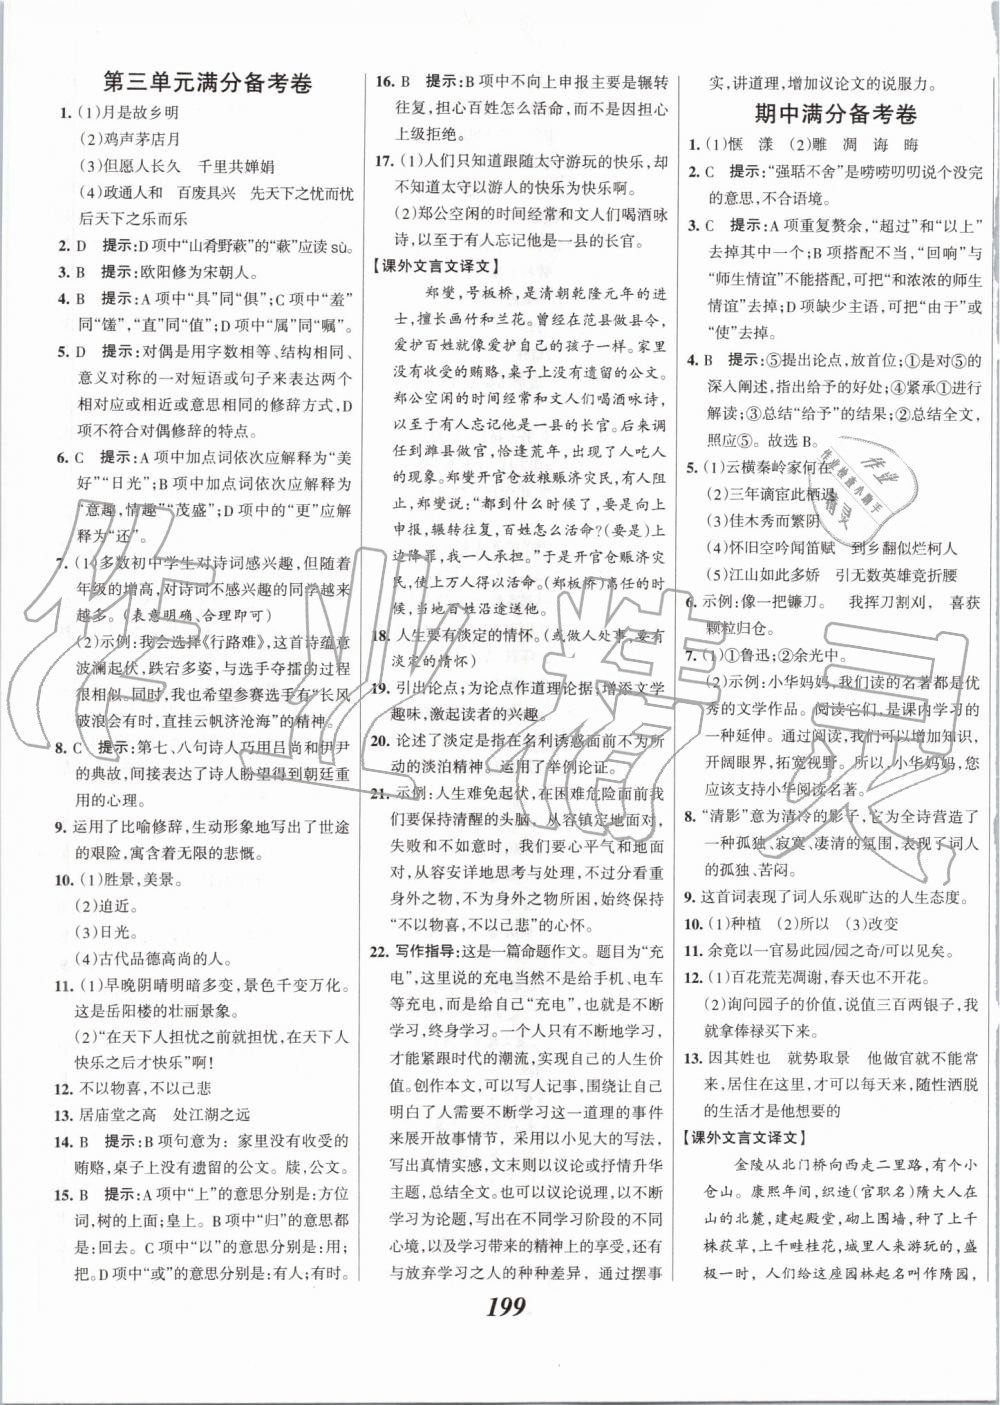 第三单元满分备考卷
1. (1)月是故乡明
(2)鸡声茅店月
(3)但愿人长久　千里共婵娟
(4)政通人和　百废具兴　先天下之忧而忧
后天下之乐而乐
2. D　提示:D项中“山肴野蔌”的“蔌”应读sù。
3. B　提示:欧阳修为宋朝人。
4. B　提示:A项中“具”同“俱”;C项中“羞”
同“馐”,“直”同“值”;D项中“属”同“嘱”。
5. D　提示:对偶是用字数相等、结构相同、
意义对称的一对短语或句子来表达两个
相对应或相近或意思相同的修辞方式,D
项不符合对偶修辞的特点。
6. C　提示:A项中加点词依次应解释为“美
好”“日光”;B项中加点词依次应解释为
“意趣,情趣”“茂盛”;D项中的“更”应解
释为“还”。
7. (1)多数初中学生对诗词感兴趣,但随着
年级的增高,对诗词不感兴趣的同学越来
越多。(表意明确、合理即可)
(2)示例:我会选择《行路难》,这首诗蕴意
波澜起伏,跌宕多姿,与选手夺擂的过程
很相似。同时,我也希望参赛选手有“长风
破浪会有时,直挂云帆济沧海”的精神。
8. C　提示:第七、八句诗人巧用吕尚和伊尹
的典故,间接表达了诗人盼望得到朝廷重
用的心理。
9. 运用了比喻修辞,生动形象地写出了世途
的艰险,寓含着无限的悲慨。
10. (1)胜景,美景。
(2)迫近。
(3)日光。
(4)古代品德高尚的人。
11. (1)早晚阴晴明暗多变,景色千变万化。
这是岳阳楼的壮丽景象。
(2)“在天下人担忧之前就担忧,在天下人
快乐之后才快乐”啊!
12. 不以物喜,不以己悲
13. 居庙堂之高　处江湖之远
14. B　提示:B项句意为:家里没有收受的
贿赂,桌子上没有遗留的公文。牍,公文。
15. B　提示:A项中“上”的意思分别是:方位
词,树的上面;皇上。B项中“归”的意思都
是:回去。C项中“以”的意思分别是:用;
把。D项中“或”的意思分别是:有人;有时。
16. B　提示:B项中不向上申报主要是辗转
往复,担心百姓怎么活命,而不是因为担心
上级拒绝。
17. (1)人们只知道跟随太守游玩的快乐,却
不知道太守以游人的快乐为快乐啊。
(2)郑公空闲的时间经常和文人们喝酒咏
诗,以至于有人忘记他是一县的长官。
【课外文言文译文】
郑燮,号板桥,是清朝乾隆元年的进
士,擅长画竹和兰花。曾经在范县做县令,
爱护百姓就像爱护自己的孩子一样。家里
没有收受的贿赂,桌子上没有遗留的公文。
郑公空闲的时间经常和文人们喝酒咏诗,
以至于有人忘记他是一县的长官。后来调
任到潍县做官,恰逢荒年,出现了人吃人
的现象。郑燮开官仓放粮赈济灾民,有人
阻止郑燮。郑燮说:“都到什么时候了,向上
申报,辗转往复,百姓怎么活命?(要是)上
边降罪,我一人承担。”于是开官仓赈济灾民,
上万人得以活命。(郑板桥)离任的时候,
当地百姓沿途送他。
18. 人生要有淡定的情怀。(或做人处事,要有
淡定的情怀)
19. 引出论点;为论点作道理论据;增添文学
趣味,激起读者的兴趣。
20. 论述了淡定是指在名利诱惑面前不为所
动的淡泊精神。运用了举例论证。
21. 示例:人生难免起伏,在困难危险面前我
们要保持清醒的头脑。从容镇定地面对,
失败和不幸面前,我们要心平气和地面
对,从容安详地思考与处理,不要太看重
身外之物,不为身外之物所困,保持
“不以物喜,不以己悲”的心怀。
22. 写作指导:这是一篇命题作文。题目为“充
电”,这里说的充电当然不是给手机、电车
等充电,而是给自己“充电”,也就是不断
学习,终身学习。一个人只有不断地学习,
才能紧跟时代的潮流,实现自己的人生价
值。创作本文,可以写人记事,围绕让自己
明白了需要不断学习这一道理的事件
展开故事情节,采用以小见大的写法,
写出真情实感,文末则以议论抒情升华
主题,总结全文。也可以议论说理,以终身
学习为论题,写出不同学习阶段的不同
心境,以及学习带来的精神上的享受,还有
与放弃学习之人的种种差异,通过摆事
实,讲道理,增加议论文的说服力。
期中满分备考卷
1. (1)惬　漾　(2)雕　凋　诲　晦
2. C　提示:“强聒不舍”是唠唠叨叨说个没完
的意思,不合语境。
3. C　提示:A项重复赘余,“超过”和“以上”
去掉其中一个;B项搭配不当,“回响”与
“师生情谊”不能搭配,可把“和浓浓的师生
情谊”去掉;D项缺少主语,可把“由于”或
“使”去掉。
4. B　提示:⑤提出论点,放首位;①是对⑤的
深入阐述,指出给予的好处;④紧承①进行
解读;③总结“给予”的结果;②总结全文,
照应⑤。故选B。
5. (1)云横秦岭家何在
(2)三年谪宦此栖迟
(3)佳木秀而繁阴
(4)怀旧空吟闻笛赋　到乡翻似烂柯人
(5)江山如此多娇　引无数英雄竞折腰
6. 示例:像一把镰刀。　我挥刀割刈,　喜获
颗粒归仓。
7. (1)①鲁迅;②余光中。
(2)示例:小华妈妈,我们读的名著都是优
秀的文学作品。阅读它们,是课内学习的
一种延伸。通过阅读,我们可以增长知识,
开阔眼界,拓宽视野。所以,小华妈妈,您
应该支持小华阅读名著。
8. “清影”意为清冷的影子,它为全诗营造了
一种孤独、寂寥、凄清的氛围,表达了词人
的孤独、苦闷。
9. 这首词表现了词人乐观旷达的人生态度。
10. (1)种植　(2)所以　(3)改变
11. 余竟以一官易此园/园之奇/可以见矣。
12. (1)百花荒芜凋谢,春天也不开花。
(2)询问园子的价值,说值三百两银子,我
就拿俸禄买下来。
13. 因其姓也　就势取景　他做官就不能常
来,居住在这里,才可以天天来,随性洒脱
的生活才是他想要的
【课外文言文译文】
金陵从北门桥向西走二里路,有个小
仓山。康熙年间,织造(官职名)隋大人在
山的北麓,建起殿堂,砌上围墙,种上千
株荻草,上千畦桂花,城里人来游玩的,盛
极一时,人们给这座园林起名叫作隋园,
199
作业精灵
作业
作业检查小助手
精灵